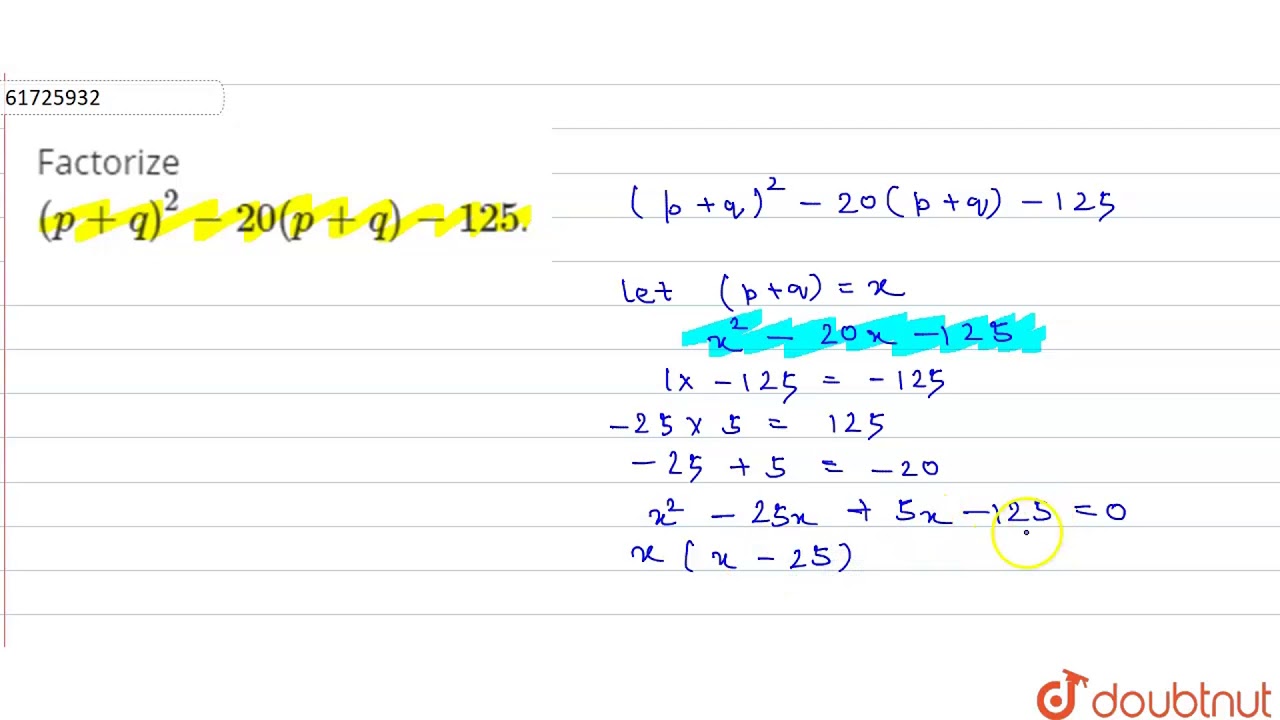 61725932
Factorize
(p + q)² − 20(p + q) − 125.
(p + q)² − 20(p + q) − 125
let (p + q) = x
x² − 20x − 125
1 x − 125 = − 125
− 25 x 5 = 125
− 25 + 5 = − 20
x² − 25x + 5x − 125 = 0
x ( x − 25)
doubtnut